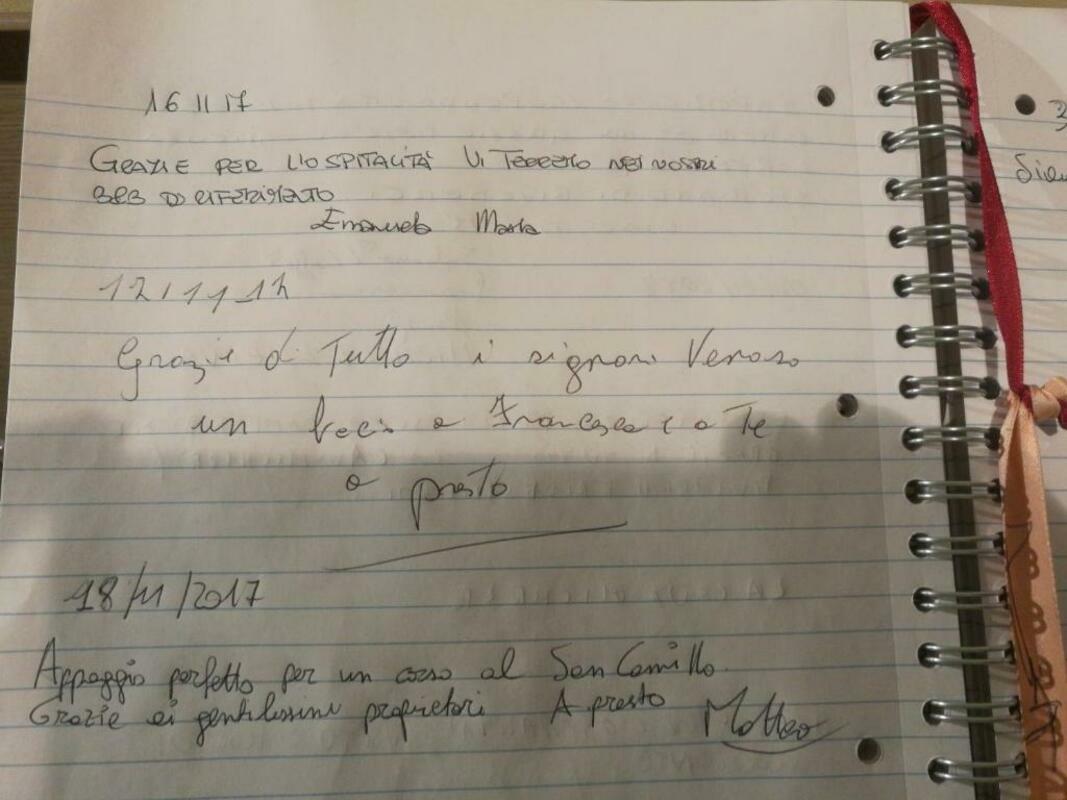 16 11 17
GRAZIE PER L'OSPITALITÀ VI TERREMO NEI NOSTRI
B&B DI RIFERIMENTO
Emanuela Marta
Grazie di Tutto i signori Veroso
un bacio a Francesca e a Te
a presto
18/11/2017
Appoggio perfetto per un corso al San Camillo
Grazie ai gentilissimi proprietari A presto Matteo